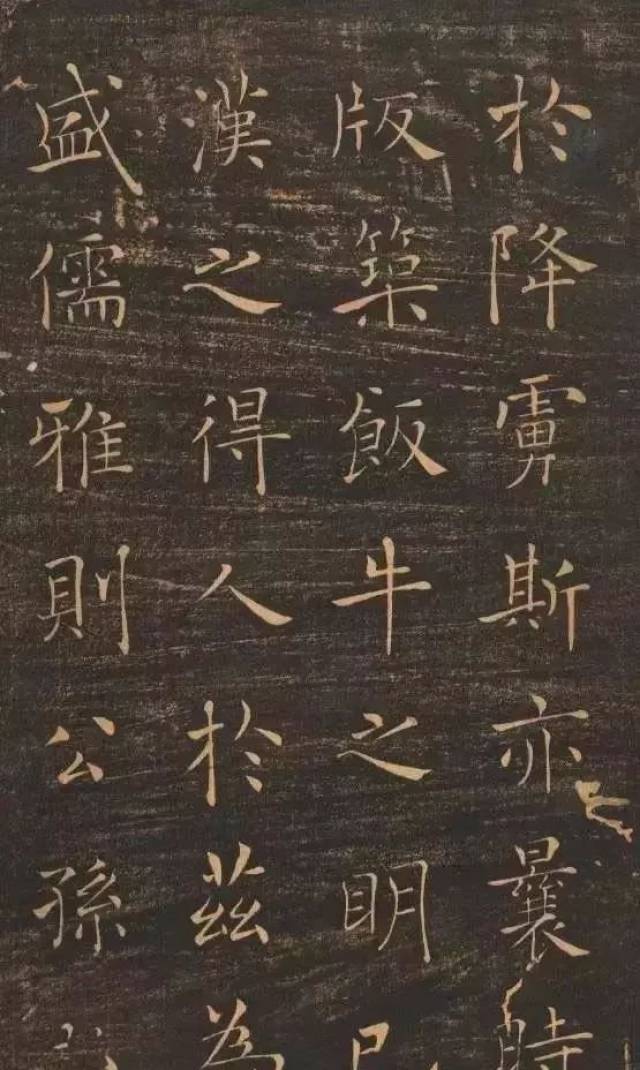 於降虜斯亦曩時
版築飯牛之眀已
漢之得人於茲為
盛儒雅則公孫